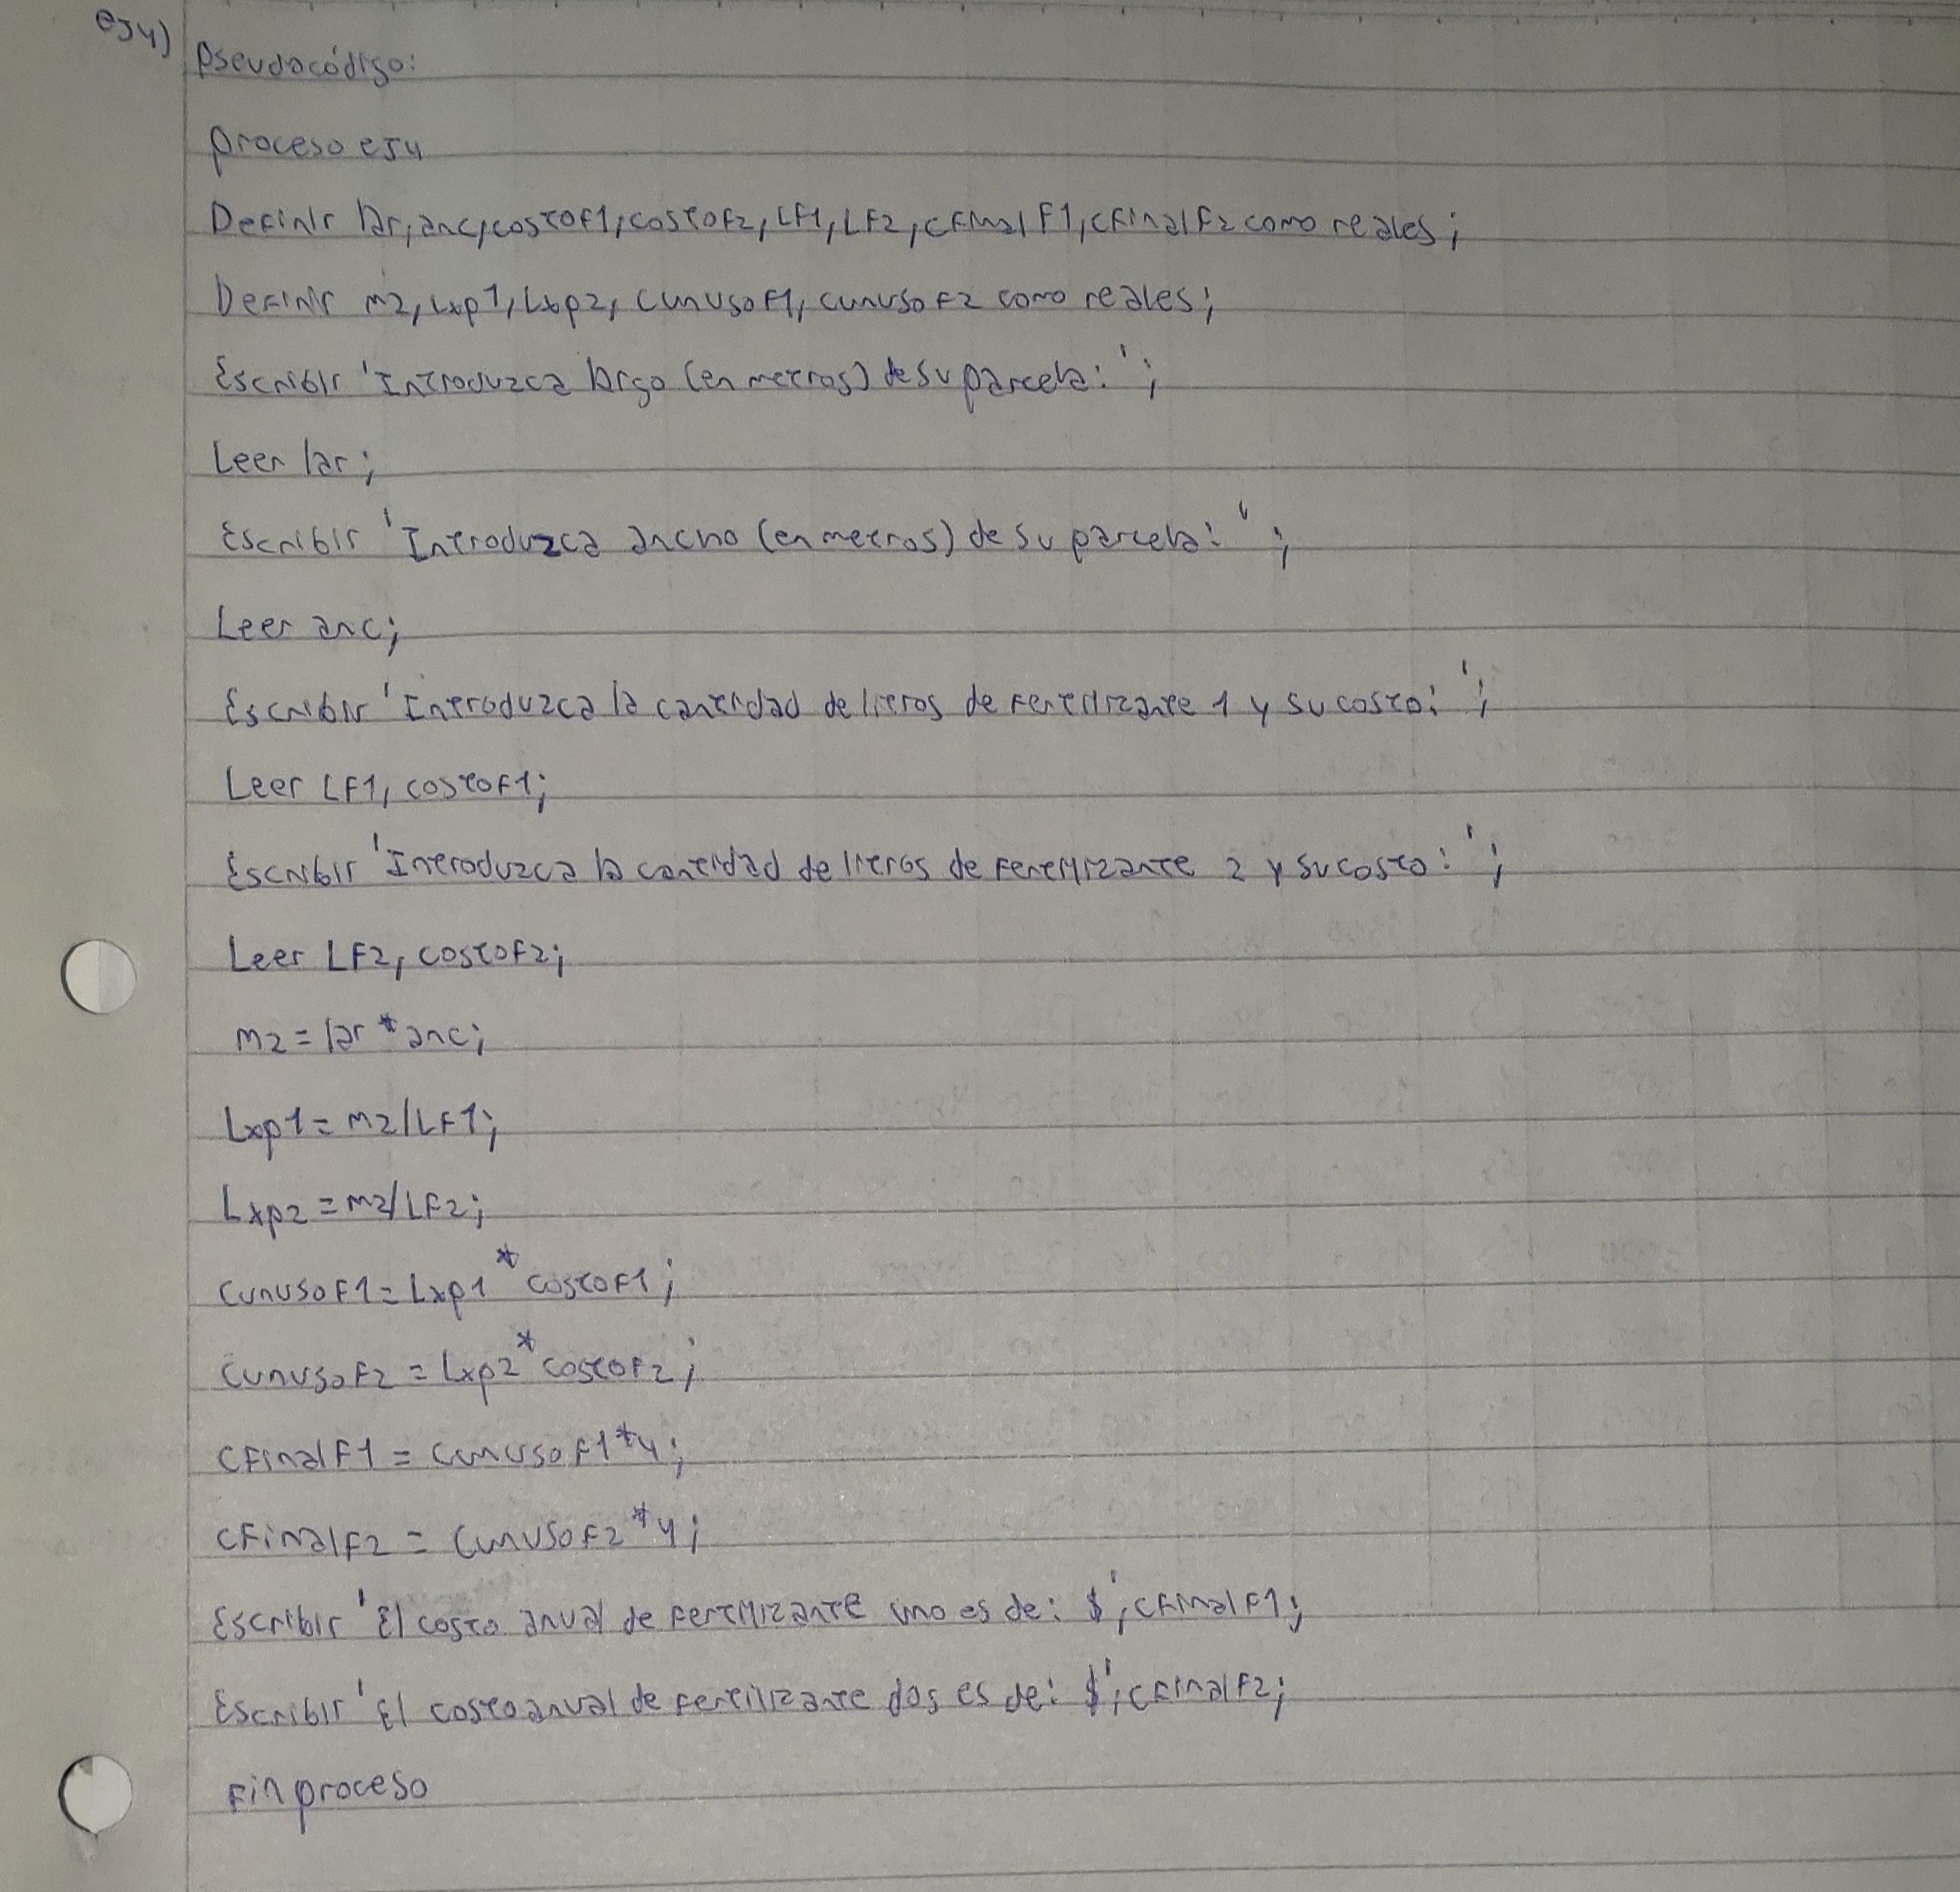 ej4)
Pseudocódigo:
proceso ej4
Definir lar, anc, costoF1, costoF2, LF1, LF2, cFinalF1, cFinalF2 como reales;
Definir m2, Lxp1, Lxp2, cunusoF1, cunusoF2 como reales;
Escribir 'Introduzca largo (en metros) de su parcela: ';
Leer lar;
Escribir 'Introduzca ancho (en metros) de su parcela: ';
Leer anc;
Escribir 'Introduzca la cantidad de litros de fertilizante 1 y su costo: ';
Leer LF1, costoF1;
Escribir 'Introduzca la cantidad de litros de fertilizante 2 y su costo: ';
Leer LF2, costoF2;
m2 = lar * anc;
Lxp1 = m2/LF1;
Lxp2 = m2/LF2;
cunusoF1 = Lxp1 * costoF1;
cunusoF2 = Lxp2 * costoF2;
cFinalF1 = cunusoF1 * 4;
cFinalF2 = cunusoF2 * 4;
Escribir 'El costo anual de fertilizante uno es de: $', cFinalF1;
Escribir 'El costo anual de fertilizante dos es de: $', cFinalF2;
Fin proceso